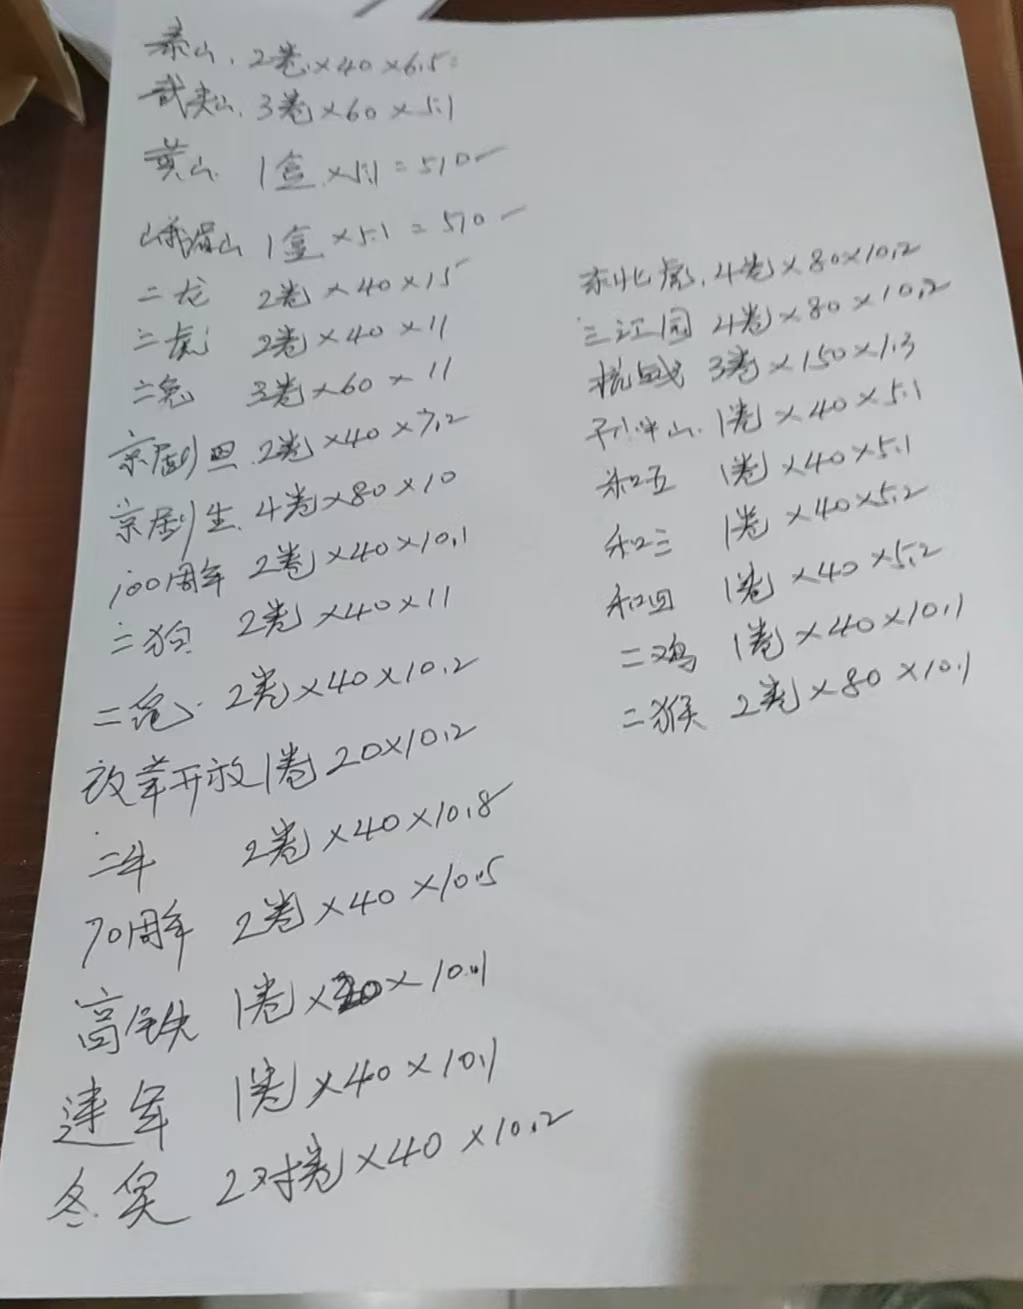 泰山. 2卷×40×6.5=
武夷山. 3卷×60×5.1
黄山 1盒×5.1=510
峨眉山 1盒×5.1=510
二龙 2卷×40×15
二虎 2卷×40×11
二兔 3卷×60×11
京剧旦. 2卷×40×7.2
京剧生. 4卷×80×10
100周年 2卷×40×10.1
二狗 2卷×40×11
二 2卷×40×10.2
改革开放1卷20×10.2
二牛 2卷×40×10.8
70周年 2卷×40×10.5
高铁 1卷×20×10.1
建军 1卷×40×10.1
冬奥 2对卷×40×10.2
东北虎. 4卷×80×10.2
三江园 4卷×80×10.2
抗战 3卷×150×1.3
孙中山. 1卷×40×5.1
和五 1卷×40×5.1
和三 1卷×40×5.2
和四 1卷×40×5.2
二鸡 1卷×40×10.1
二猴 2卷×80×10.1